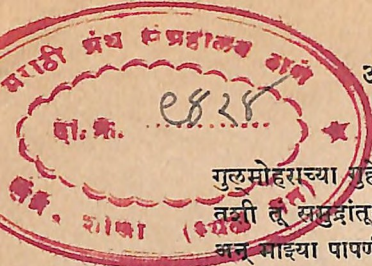 मराठी ग्रंथ संग्रहालय ठाणे
दा. क्र. ९४२४
शाखा
गुलमोहराच्या
तशी तूं समुद्रांतू
अन् माझ्या पापणी